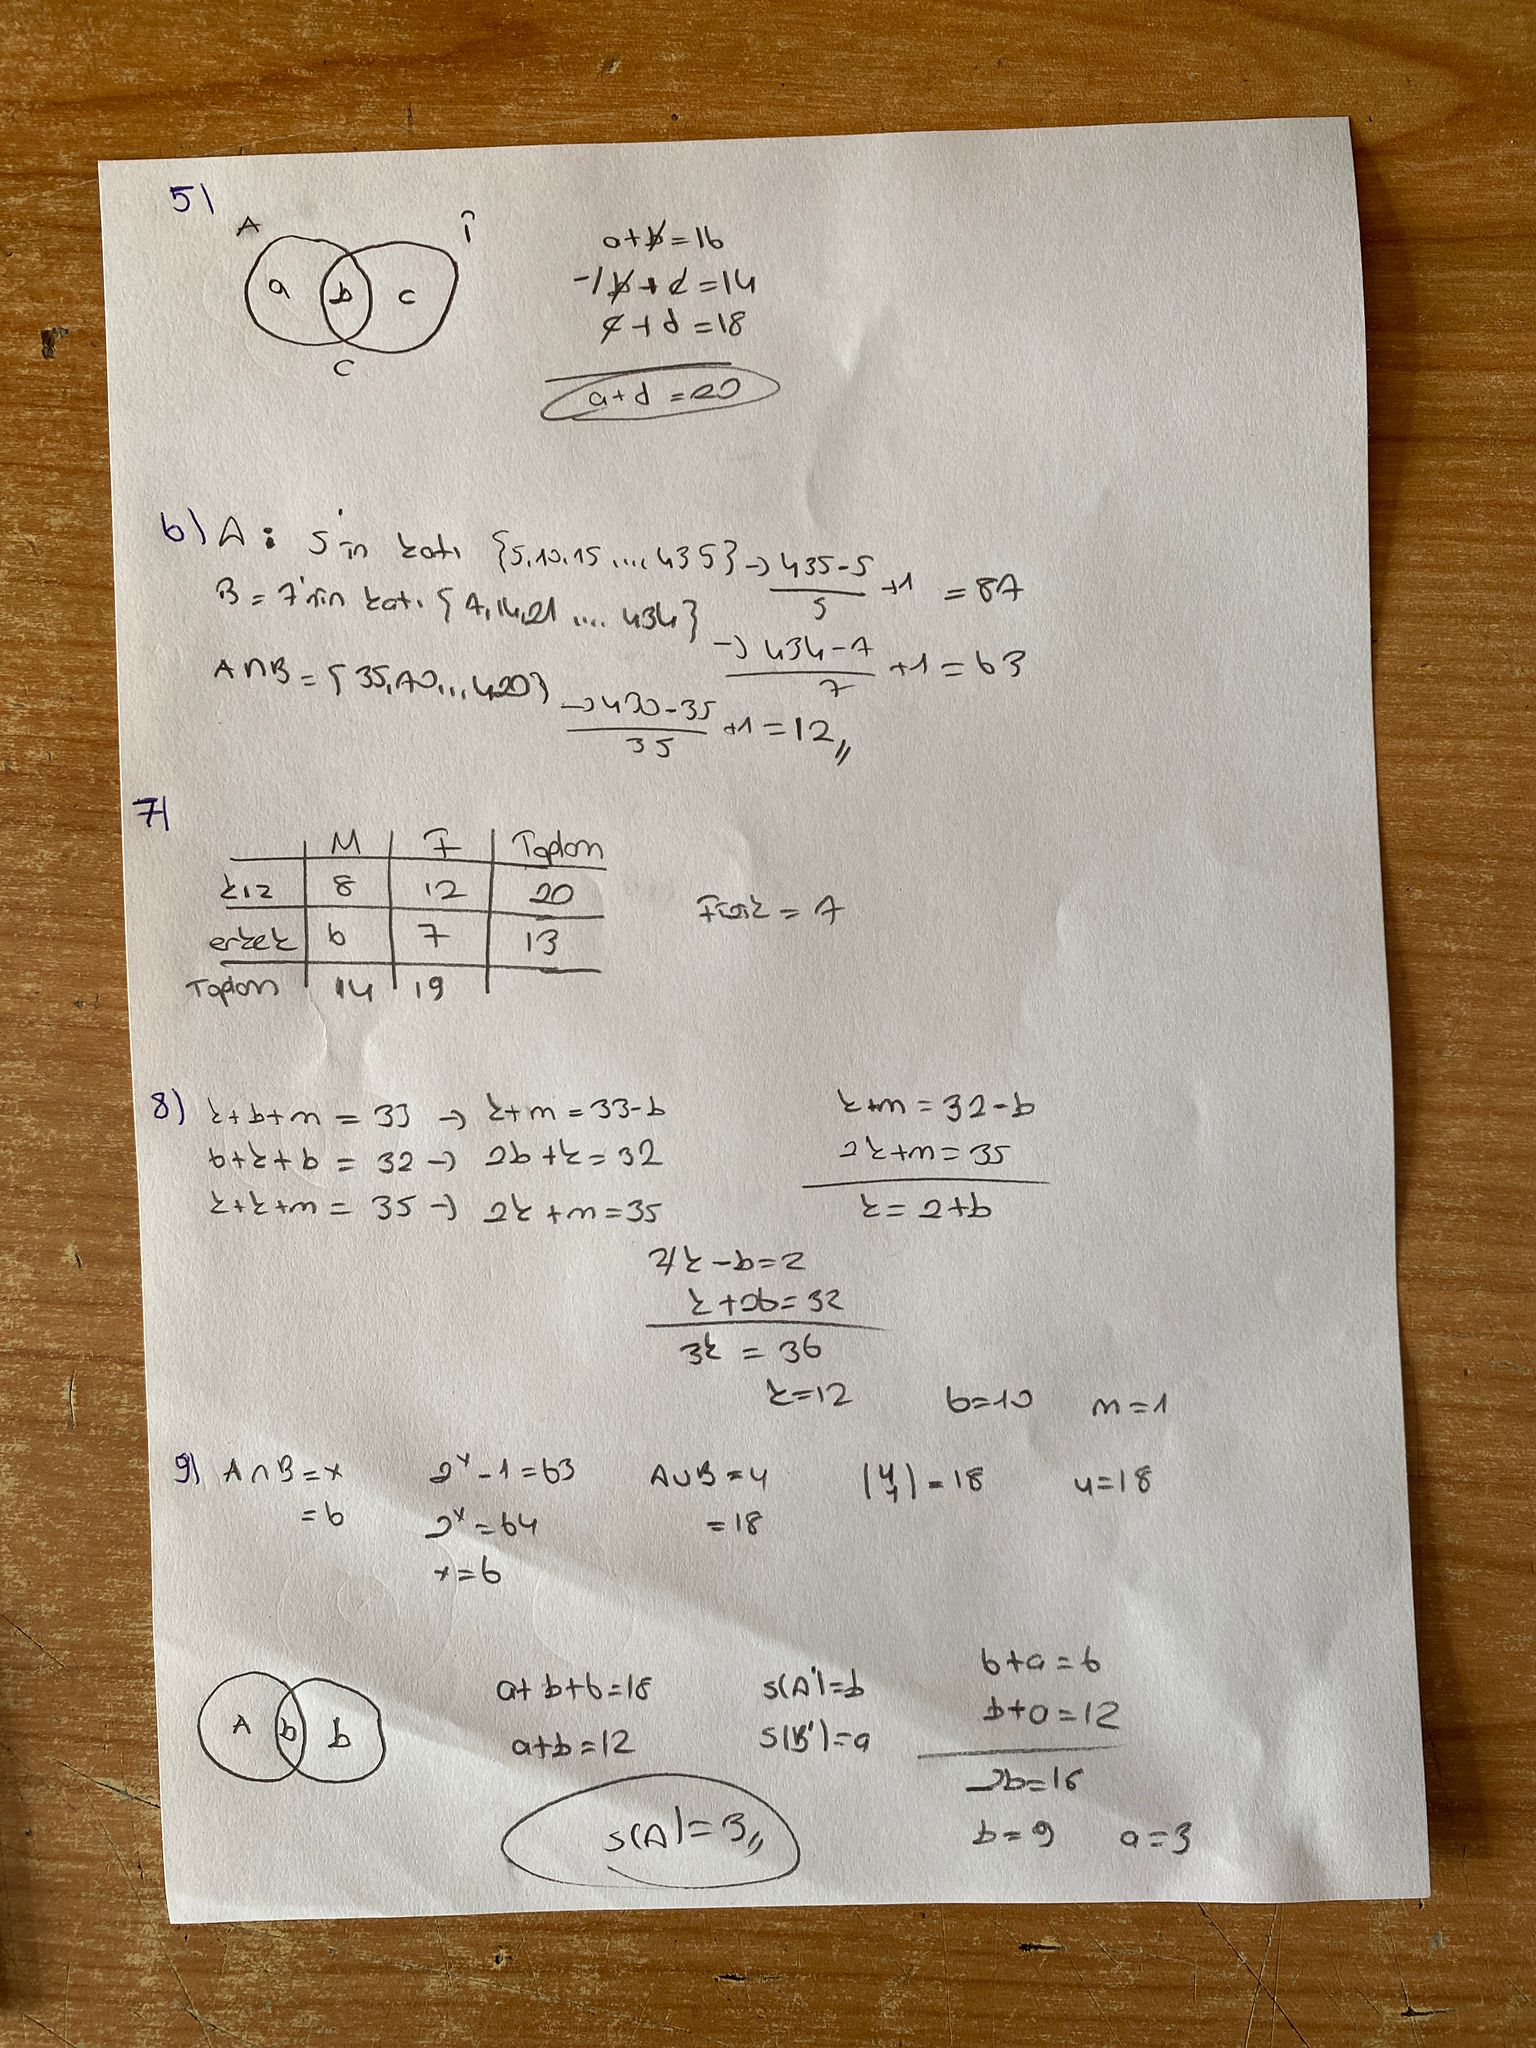 5)
A İ
a b c
C
a+b=16
-/b+c=14
c+d=18
a+d=20
6) A: 5'in katı {5,10,15....435}→ 435-5/5 +1 = 87
B = 7'nin katı {7,14,21 .... 434} → 434-7/7 +1 = 63
A∩B = {35,70...,420} → 420-35/35 +1 = 12,,
7)
M F Toplam
kız 8 12 20
erkek 6 7 13
Toplam 14 19
Fark = 7
8) k+b+m = 33 → k+m = 33-b
b+k+b = 32 → 2b+k = 32
k+k+m = 35 → 2k+m=35
k+m = 32-b
2k+m = 35
k = 2+b
2/k-b=2
k+2b=32
3k = 36
k=12 b=10 m=1
9) A∩B = x 2ˣ-1=63 A∪B = y (y 1) = 18 y=18
= 6 2ˣ=64 = 18
x=6
A b b
a+b+6=18 s(A')=b b+a=6
a+b=12 s(B')=a b+a=12
2b=18
s(A)=3,, b=9 a=3